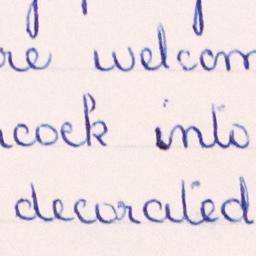 re welcom
cock into
decorated